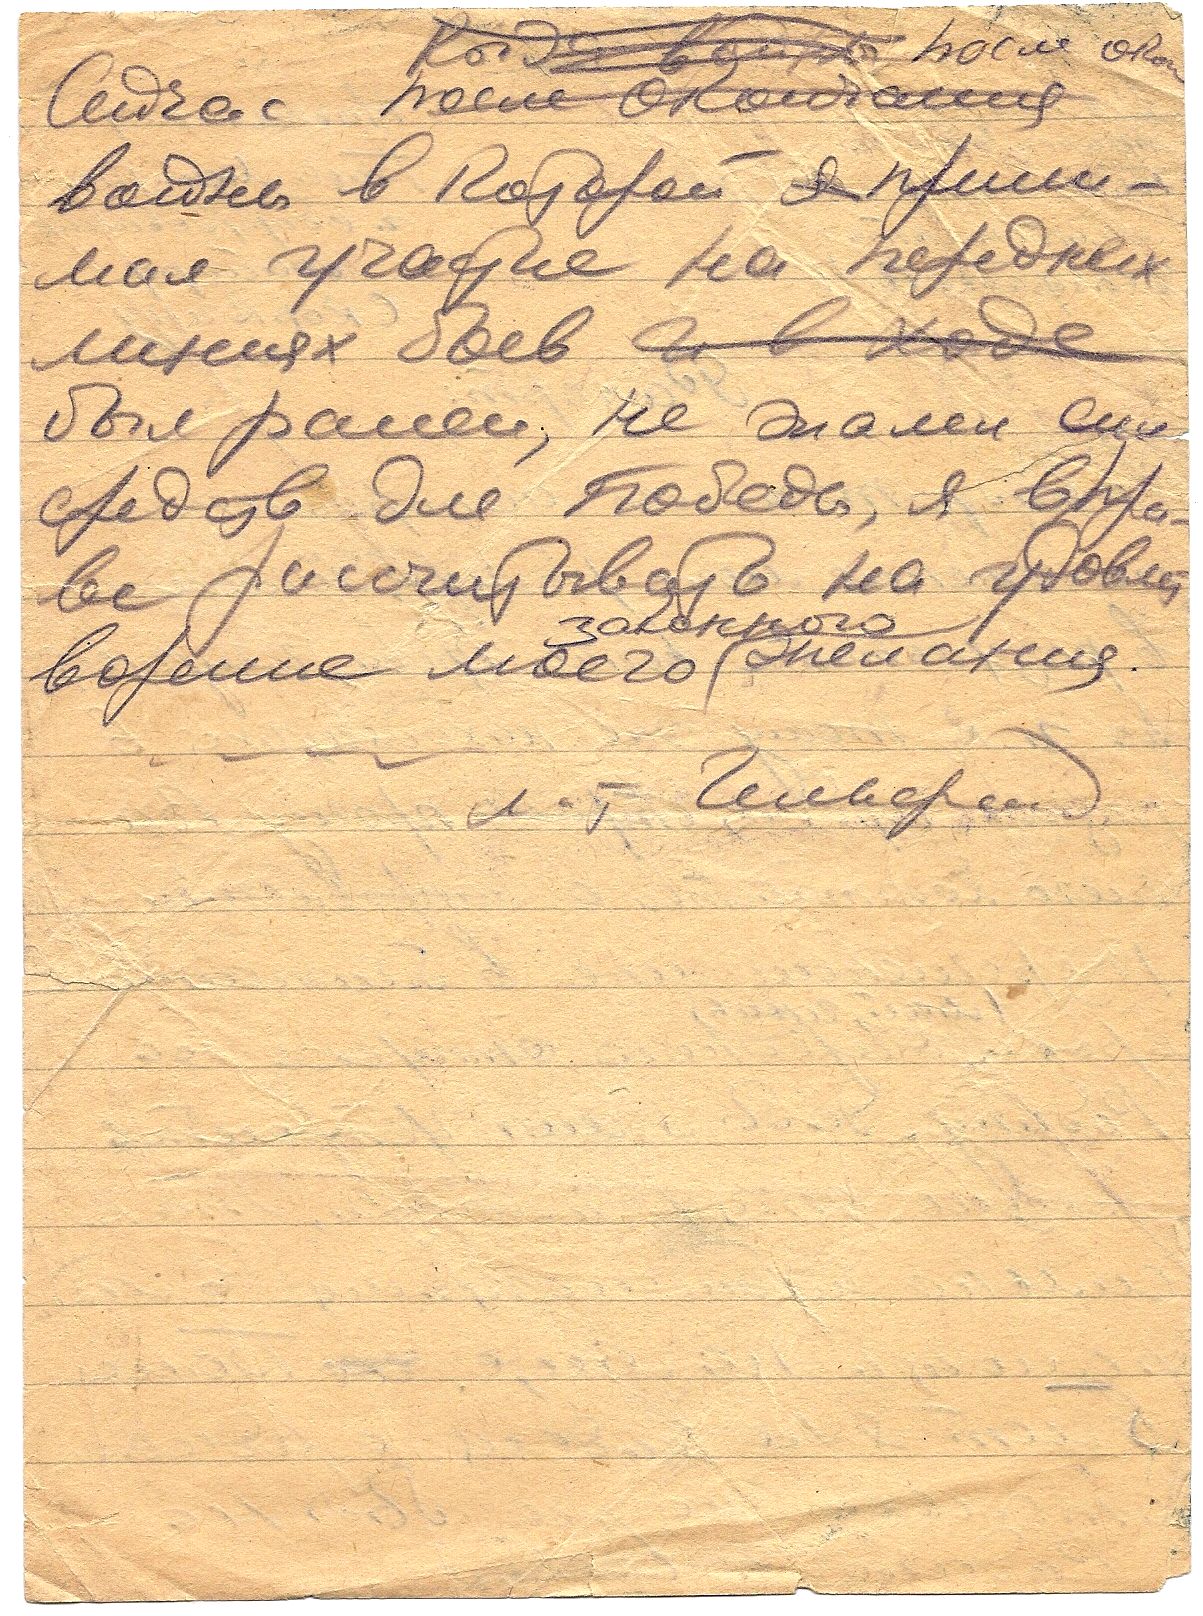 Когда войны после окон
Сейчас после окончания
войны в которой я прини-
мая участие на передних
линиях боев и в ходе
был ранен, не жалел сил
средств для победы, я впра-
ве рассчитывать на удовлет
законного
ворение моего желания.
л-т